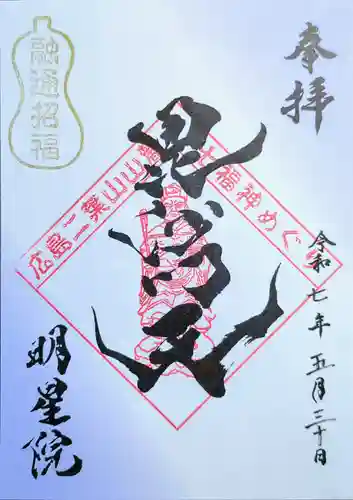 奉拝
令和七年五月三十日
毘沙門天
広島二葉山山麓七福神めぐり
明星院
融通招福